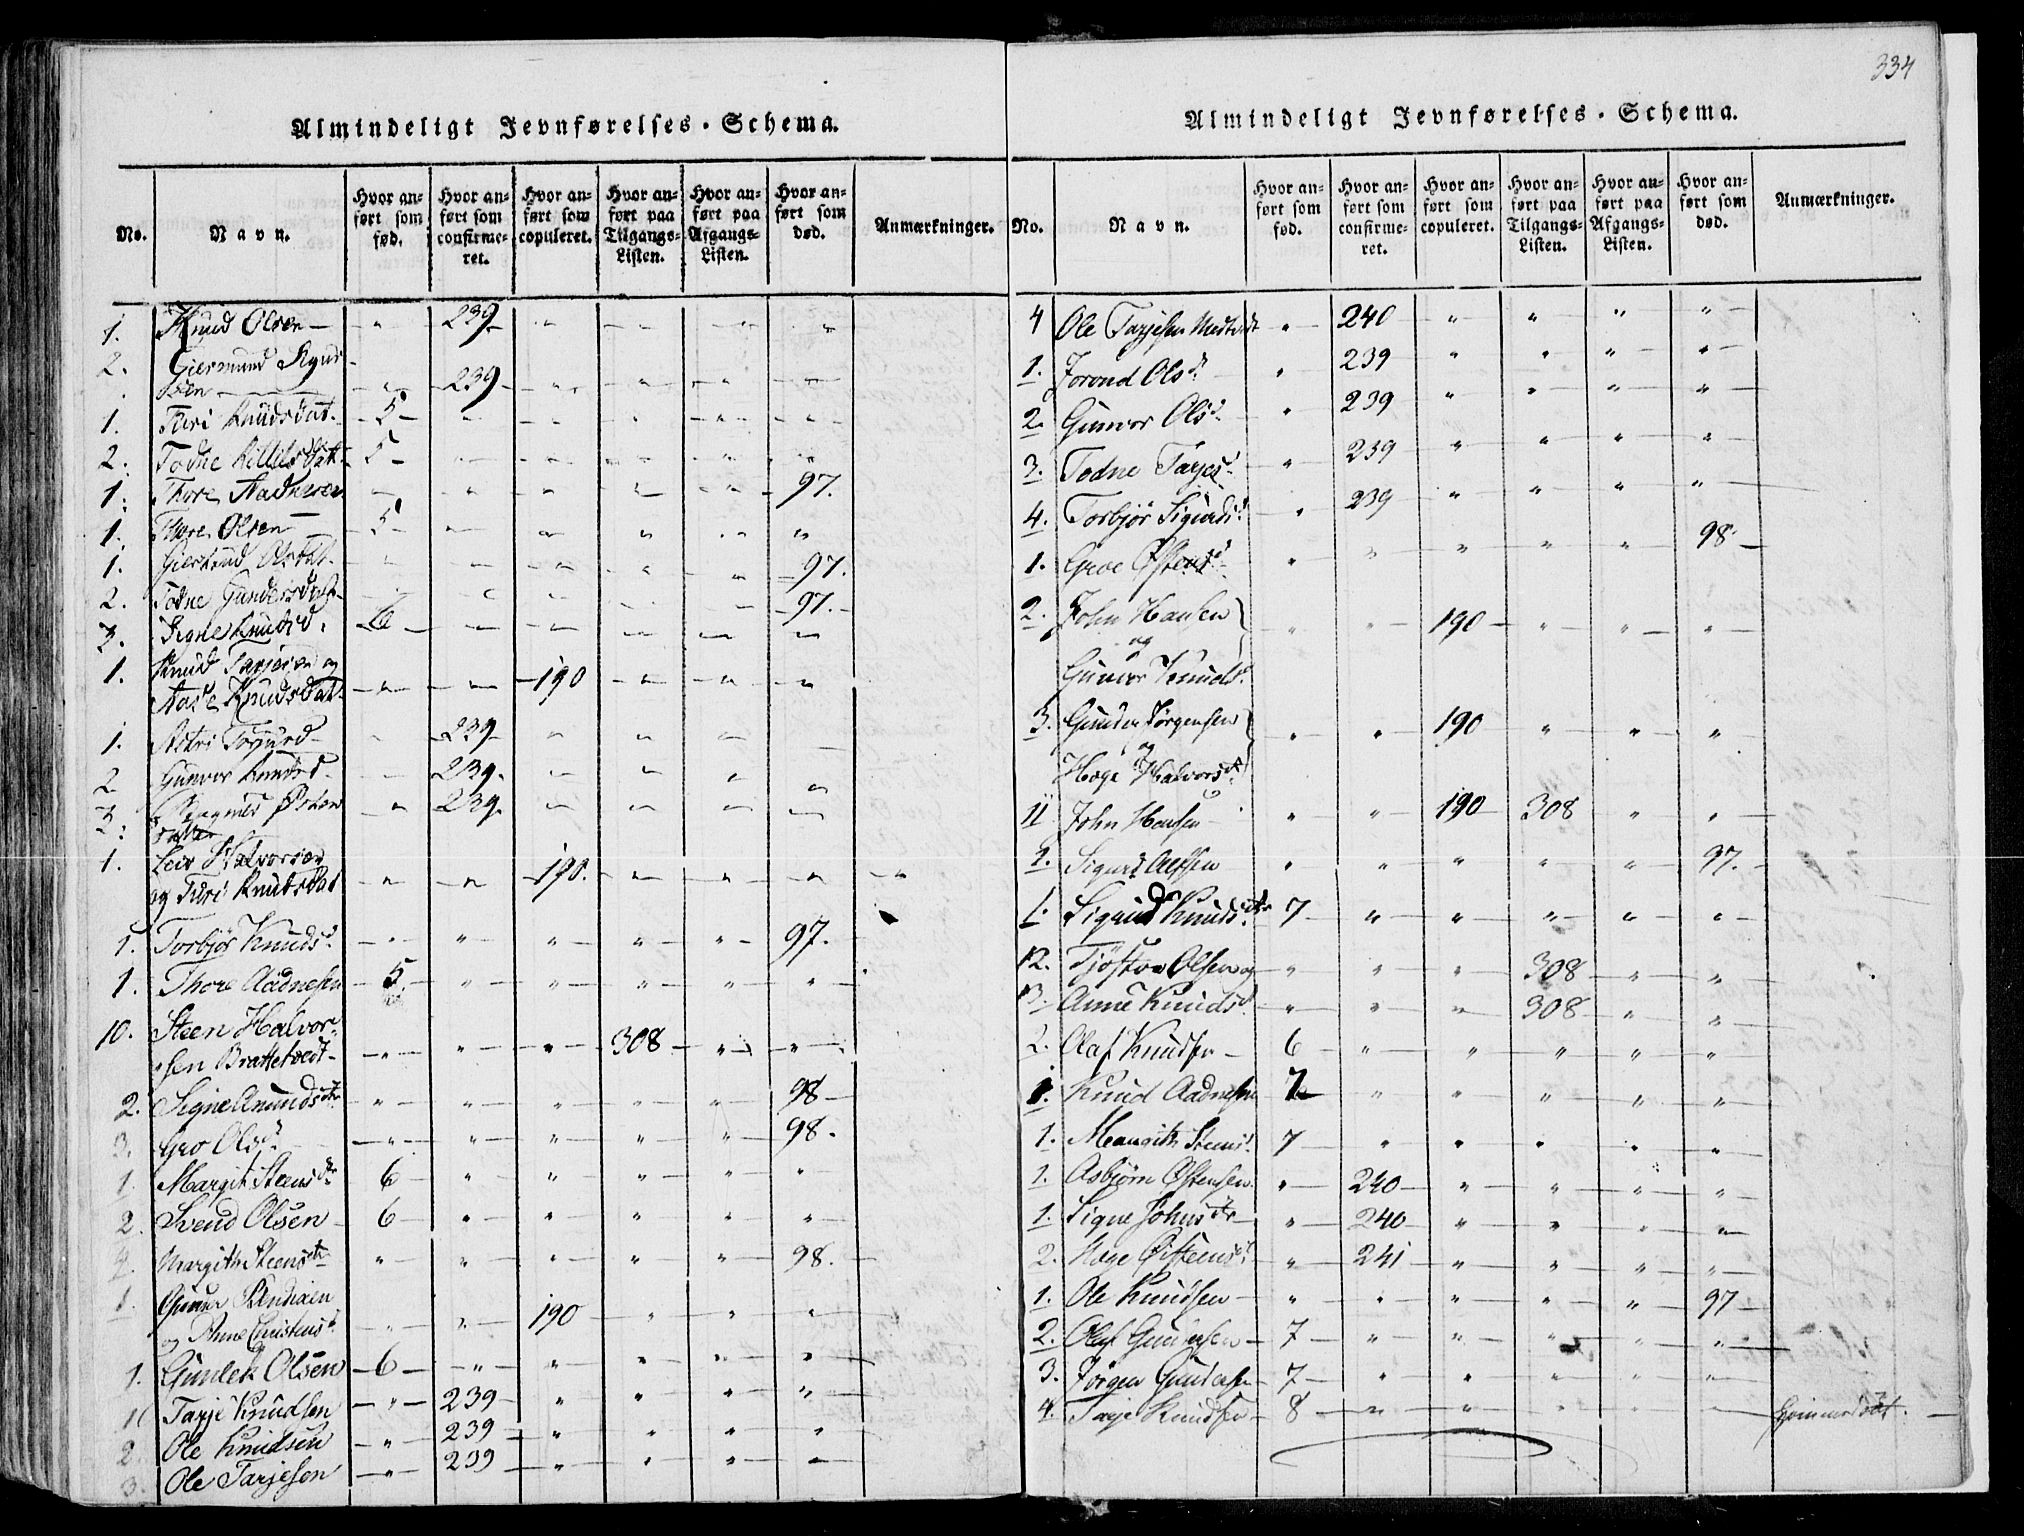 334
Almindeligt Jevnførelses-Schema.
No. Navn. Hvor anført som fød. Hvor anført som confirmeret. Hvor anført som copuleret. Hvor anført paa Tilgangs-Listen. Hvor anført paa Afgangs-Listen. Hvor anført som død. Anmærkninger.
1. Knud Olsen — " — 239 — " — " — " — "
2. Giermund Kgnd-
sen — " — 239 — " — " — " — "
1. Turi Knudsdat. — 5 — " — " — " — " — "
2. Todne Killilsdatt. — 5 — " — " — " — " — "
1. Thore Aadnesen — " — " — " — " — " — 97.
1. Thore Olsen — 5 — " — " — " — " — "
1. Giertrud Olsdat. — " — " — " — " — " — 97.
2. Todne Gundersdat. — " — " — " — " — " — 97.
3. Signe Knutsd. — 6 — " — " — " — " — "
1. Knud Tarjesen og
Aase Knudsdat. — " — " — 190 — " — " — "
1. — 239 — " — " — " —
2 Gunvor Knutsd. — 239. — " — " — " — "
3. Østen
datter — " — 239. — " — " — " — "
1. Leiv Halvorsen
og Turi Knutsdat — " — " — 190. — " — " — " — "
1. Torbjør Knudsd. — " — " — " — " — " — 97.
1. Thore Aadnesen — 5. — " — " — " — " — "
10. Steen Halvor-
sen Brattetvedt — " — " — " — 308 — " — "
2. Signe Amundsdtr — " — " — " — " — " — 98 —
3. Gro Olsd. — " — " — " — " — " — 98.
1. Margit Steensdtr 6 — " — " — " — " — "
2. Svend Olsen — 6 — " — " — " — " — "
4. Margith Steensdtr — " — " — " — " — " — 98. —
1. Gunner Bendixen
og Anne Christensd. — " — " — 190 — " — " — "
1. Gunlek Olsen — 6 — " — " — " — " — "
1 Tarje Knudsen — " — 239 — " — " — " — "
2. Ole Knudsen — " — 239 — " — " — " — "
3. Ole Tarjesen — " — 239 — " — " — " — "
Almindeligt Jevnførelses-Schema.
No. Navn. Hvor anført som fød. Hvor anført som confirmeret. Hvor anført som copuleret. Hvor anført paa Tilgangs-Listen. Hvor anført paa Afgangs-Listen. Hvor anført som død. Anmærkninger.
4 Ole Tarjesen " — 240 — " — " — " — "
1. Jorond Olsd. — " — 239 — " — " — " — "
2. Gunvor Olsd. — " — 239 — " — " — " — "
3. Todne Tarjesd. — " — 239 — " — " — " — "
4. Torbjør Sigurdsd. — " — 239 — " — " — " — "
1. Groe Østensd. — " — " — " — " — " — 98. —
2. John Hansen
og — " — " — 190 — " — " — "
Gunvor Knudsd.
3. Gunder Jørgensen
og — " — " — 190 — " — " — "
Hæge Halvorsdt.
11 John Hansen — " — " — 190 — 308 — " — "
1. Sigurd — " — " — " — " — " — 97. —
1. Sigrid Knudsdtr 7 — " — " — " — " — "
12. Tjøstov Olsen og — " — " — " — 308 — " — "
13. Anne Knudsd. — " — " — " — 308 — " — "
2. Olaf Knudsen — 6 — " — " — " — " — "
1. Knud Aadnesen 7 — " — " — " — " — "
1. Maugith Steensd. 7 — " — " — " — " — "
1. Asbjørn Østensen. — " — 240 — " — " — " — "
1. Signe Johnsdtr — " — 240 — " — " — " — "
2. Hæge Østeensd. — " — 241 — " — " — " — "
1. Ole Knudsen — " — " — " — " — " — 97 —
2. Olaf Gundersen — 7 — " — " — " — " — "
3. Jørgen Gundersen — 7 — " — " — " — " — "
4. Tarje Knudsen — 8 — " — " — " — " —